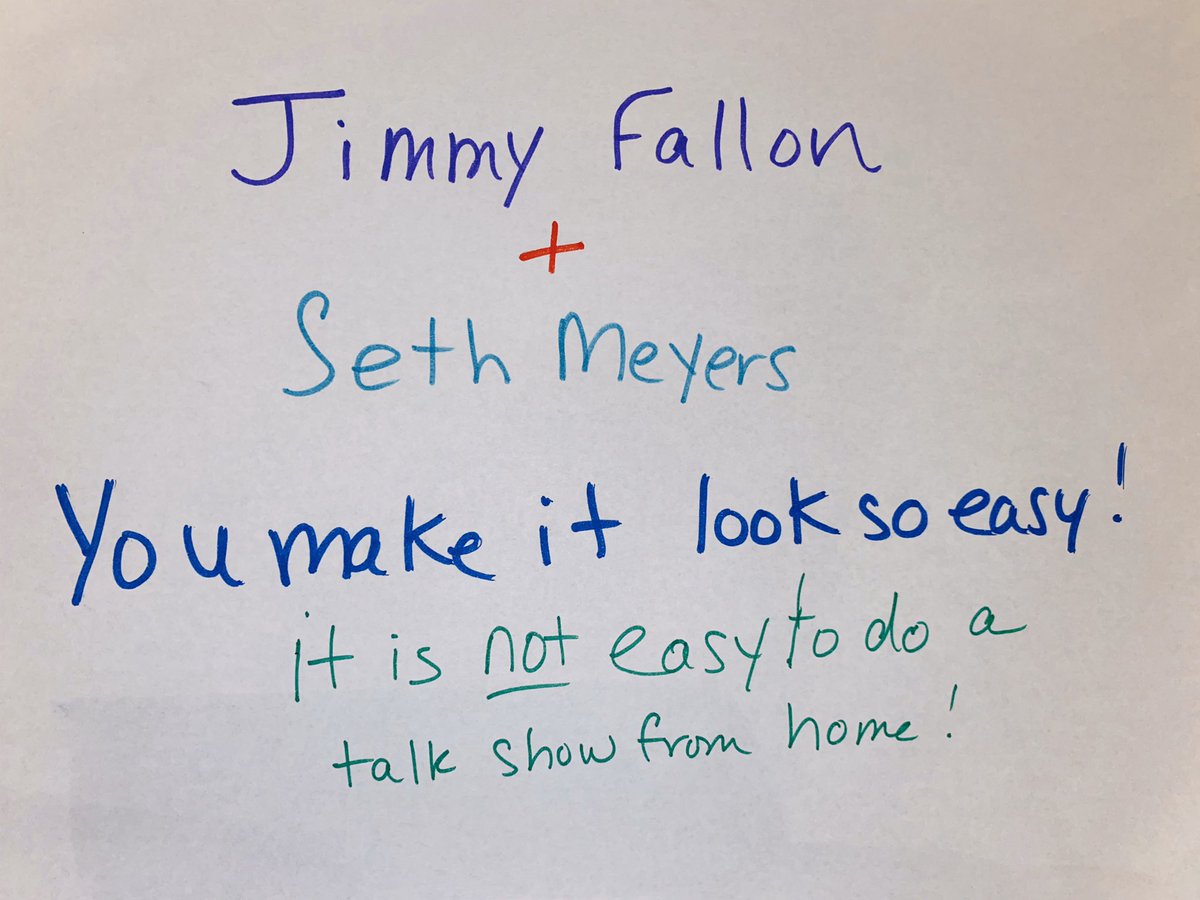 Jimmy Fallon
+
Seth Meyers
You make it look so easy!
it is not easy to do a
talk show from home!